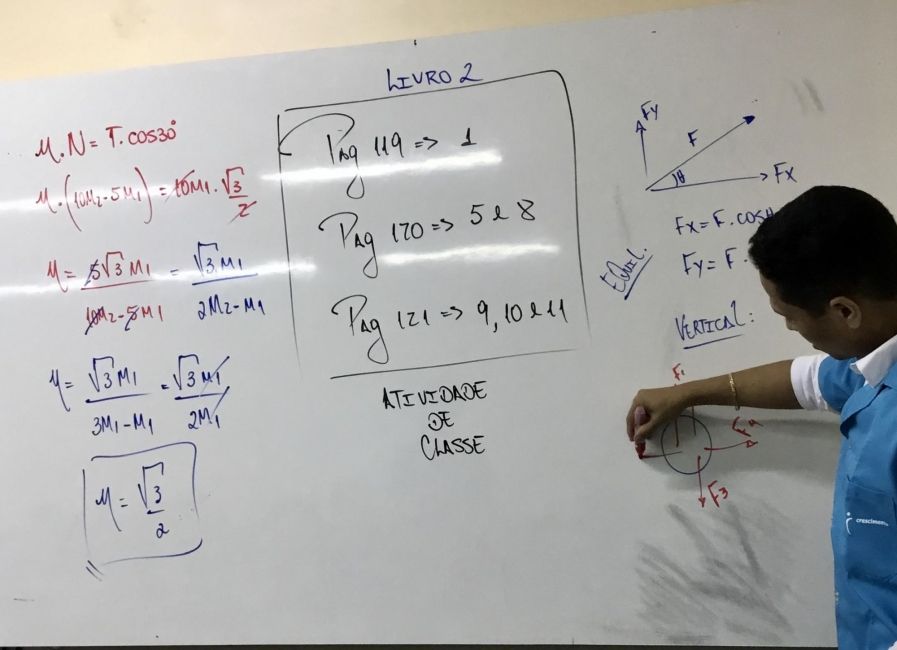 μ.N = T.cos30°
μ.(10M2-5M1) = 10M1.√3/2
μ = 5√3 M1/10M2-5M1 = √3 M1/2M2-M1
μ = √3 M1/3M1-M1 = √3 M1/2M1
μ = √3/2
LIVRO 2
Pág 119 => 1
Pág 120 => 5 e 8
Pág 121 => 9, 10 e 11
ATIVIDADE
DE
CLASSE
Fy
F
θ
Fx
Fx = F.cosθ
Fy = F.
EQUIL.
VERTICAL:
F1
F4
F3